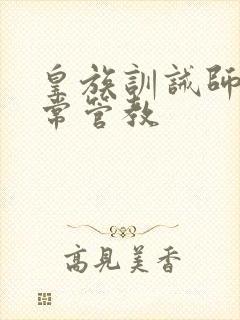 皇族訓誡師
常管教
高見美香